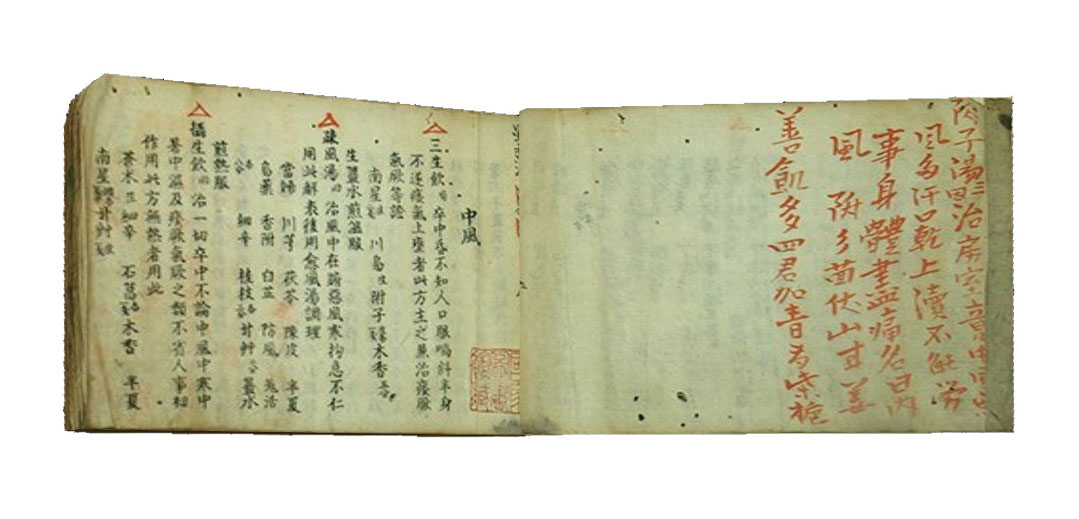 子湯治房室中
風多汗口乾上瀆不能勞
事身體盡痛名曰內
風 附多茴伏山甘姜
善飢多四君加青柴梔
中風
三生飲 卒中昏不知人口眼喎斜半身
不遂痰氣上壅者此方主之兼治痰厥
氣厥等證
南星 川烏 附子 木香
生薑水煎溫服
疎風湯 治風中在腑惡風寒拘急不仁
用此解表後用愈風湯調理
當歸 川芎 茯苓 陳皮 半夏
烏藥 香附 白芷 防風 羌活
細辛 桂枝 甘艸 薑水
煎熱服
攝生飲 治一切卒中不論中風中寒中
暑中溫及痰厥氣厥之類不省人事初
作用此方無熱者用此
木 細辛 石菖 木香 半夏
南星 甘艸